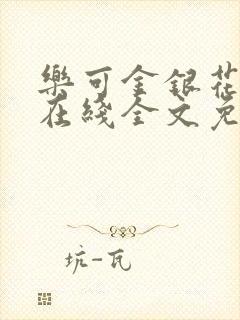 樂可金銀花
在綫全文免
坑-瓦